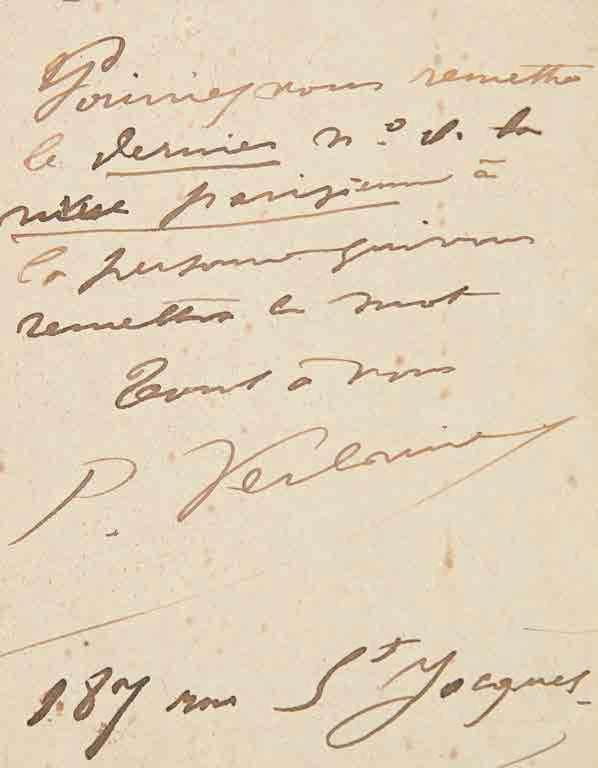 Pourriez vous remettre
le dernier n.o de la
vie parisienne à
la personne qui vous
remettra ce mot
Tout à vous
P. Verlaine
187 rue St Jacques